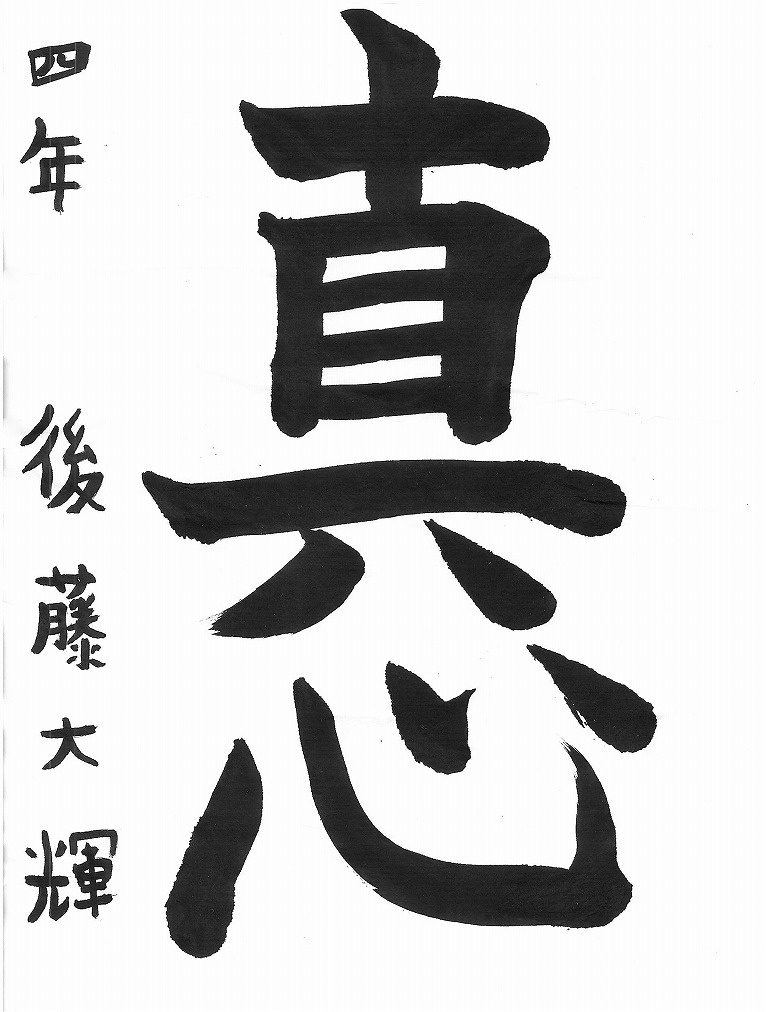 真心
四年 後藤大輝